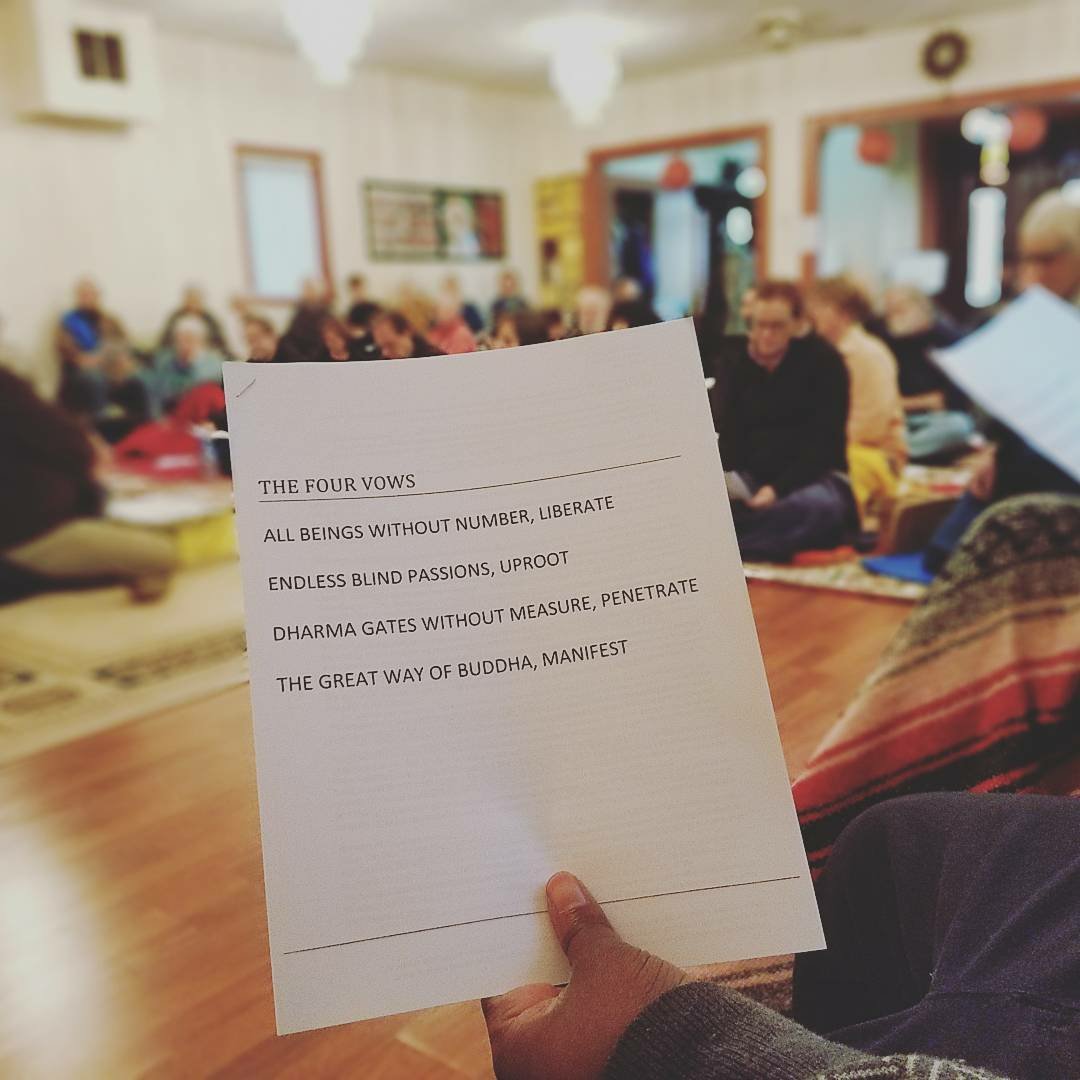 THE FOUR VOWS
ALL BEINGS WITHOUT NUMBER, LIBERATE
ENDLESS BLIND PASSIONS, UPROOT
DHARMA GATES WITHOUT MEASURE, PENETRATE
THE GREAT WAY OF BUDDHA, MANIFEST